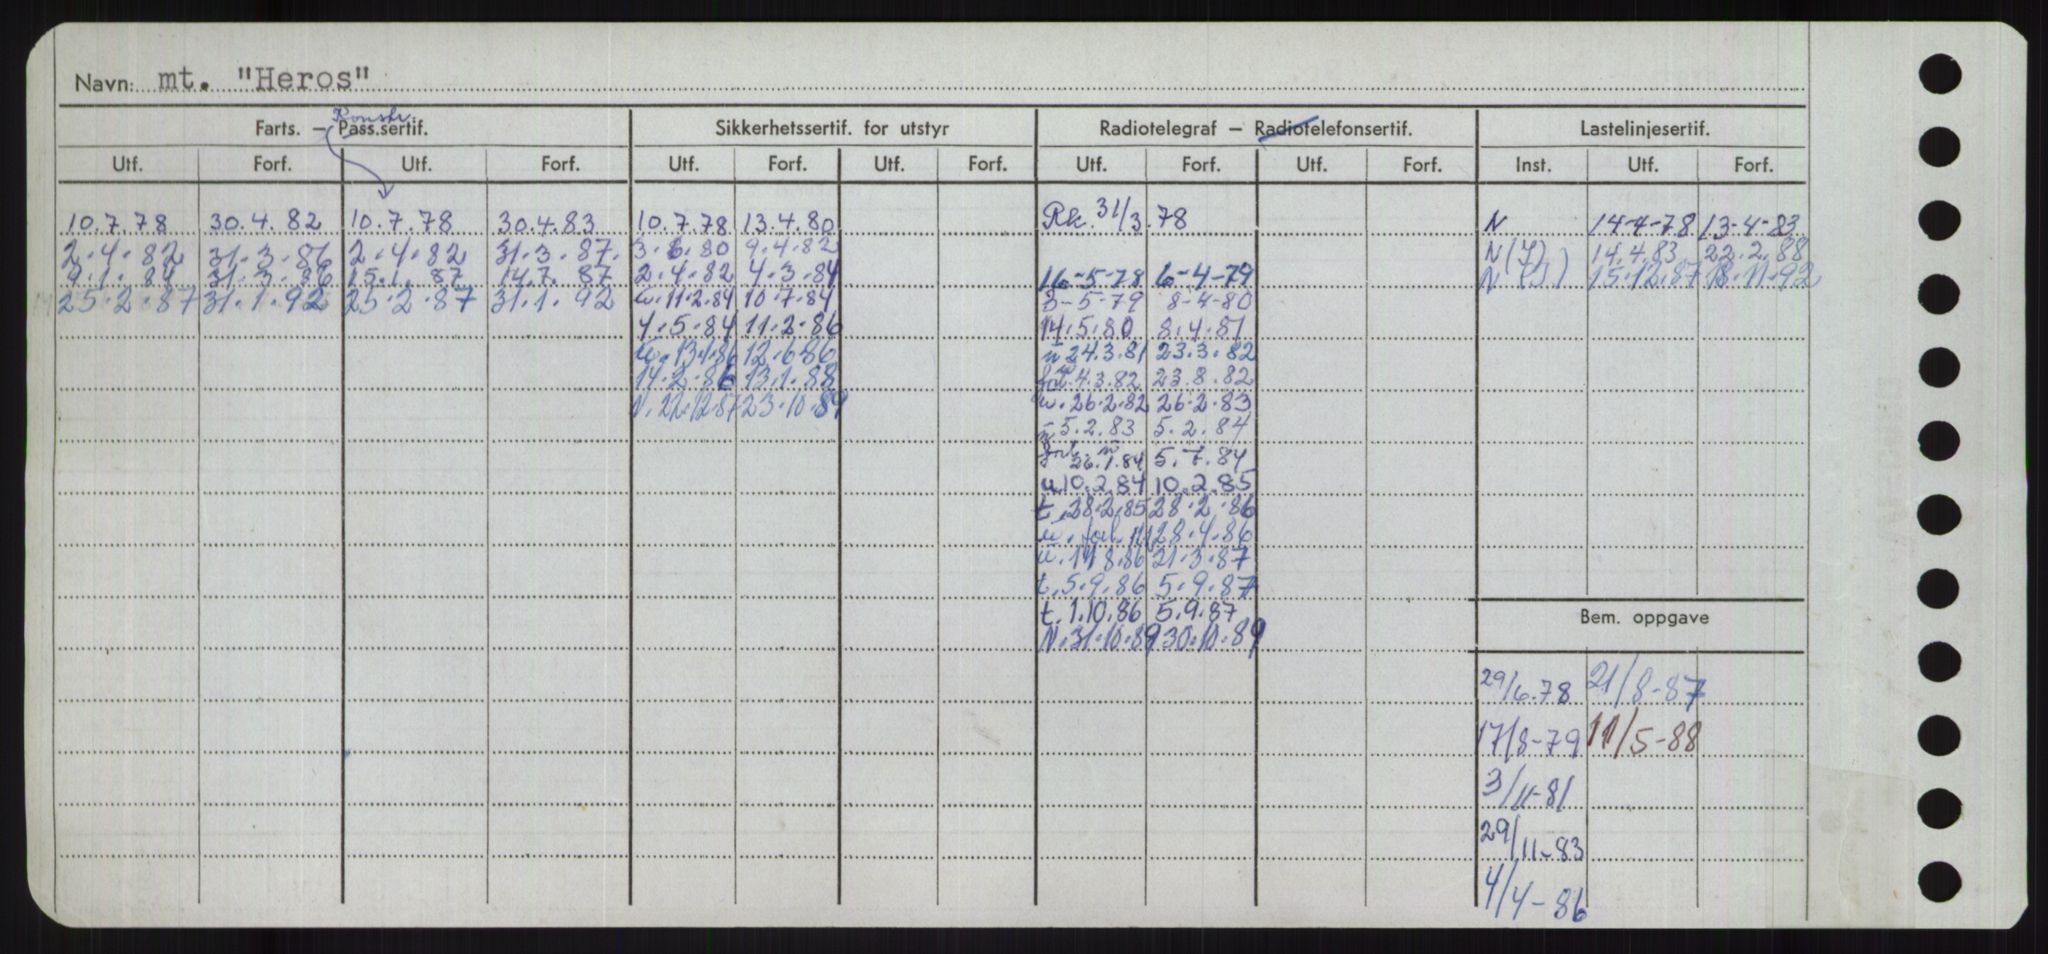 Navn: mt. "Heros"
Konstr.
Farts. – Pass.sertif. Sikkerhetssertif. for utstyr Radiotelegraf – Radiotelefonsertif. Lastelinjesertif.
Utf. Forf. Utf. Forf. Utf. Forf. Utf. Forf. Utf. Forf. Utf. Forf. Inst. Utf. Forf.
10.7.78 30.4.82 10.7.78 30.4.83 10.7.78 13.4.80 Rk. 31/3.78 N 14-4-78 13-4-83
2.4.82 31.3.86 2.4.82 31.3.87. 3.6.80 9.4.82 N 14.4.83 22.2.88
9.1.84 31.3.86 15.1.87 14.7.87 2.4.82 4.3.84 16-5-78 6-4-79 N 15.12.87 18.11.92
25.2.87 31.1.92 25.2.87 31.1.92 u.11.2.84 10.7.84 3-5-79 8-4-80
4.5.84 11.2.86 14.5.80 8.4.81
u.13.1.86 12.6.86 n 24.3.81 23.3.82
14.2.86 13.1.88 4.3.82 23.8.82
N.22.12.87 23.10.89 u.26.2.82 26.2.83
5.2.83 5.2.84
26.1.84 5.7.84
u 10.2.84 10.2.85
t.28.2.85 28.2.86
u. forl. 28.4.86
u. 8.86 21.3.87
t.5.9.86 5.9.87
t.1.10.86 5.9.87
N.31.10.89 30.10.89
Bem. oppgave
29/6.78 21/8-87
17/8-79 11/5-88
3/11-81
29/11-83
4/4-86